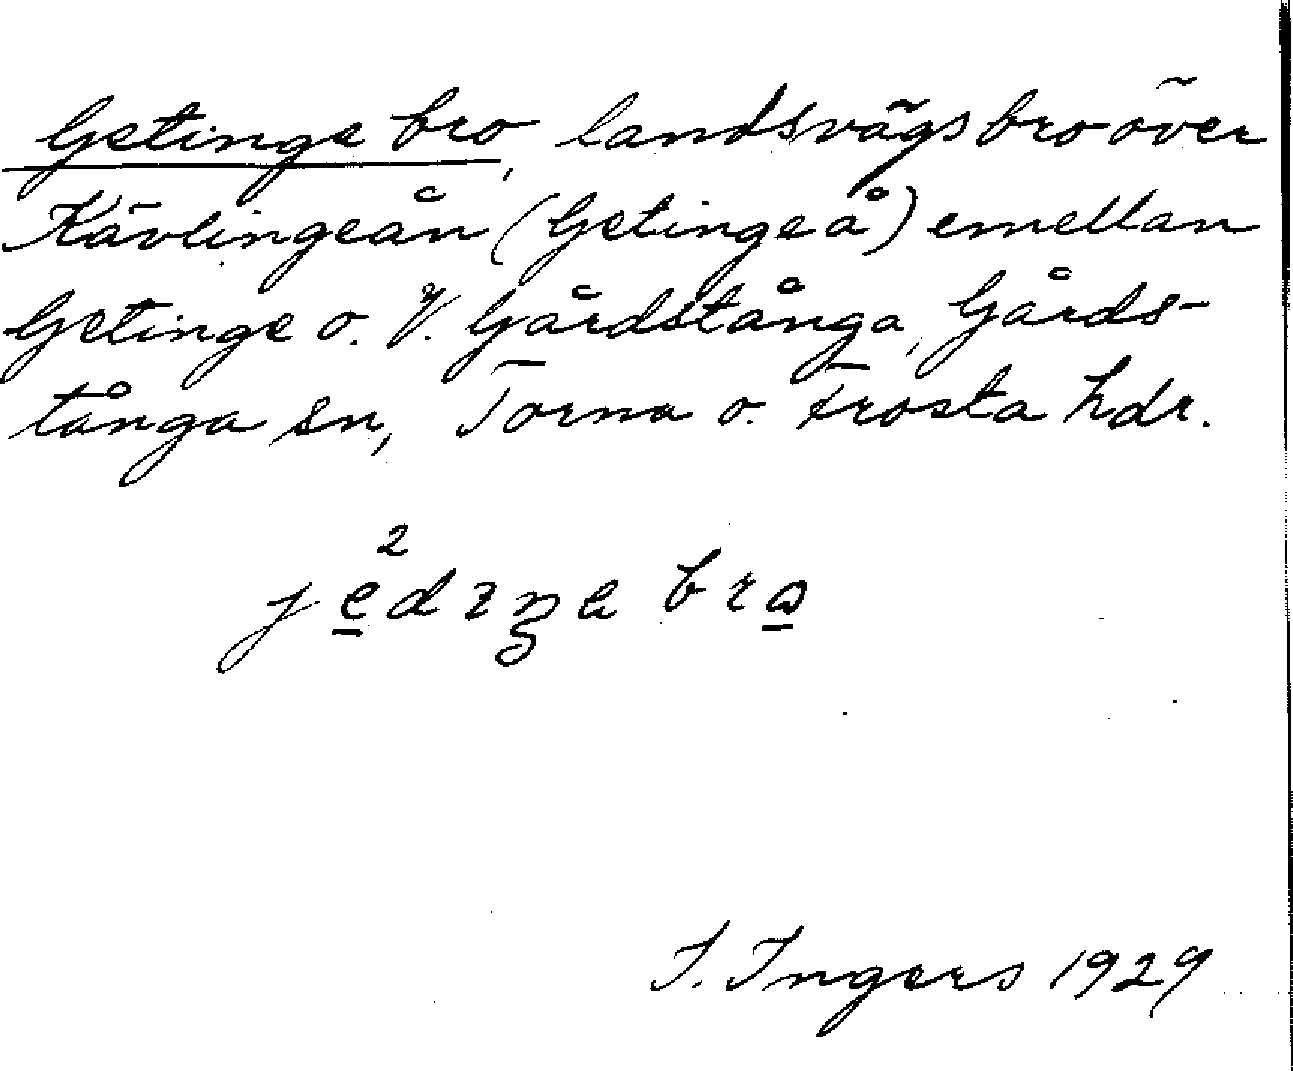 Getinge bro, landsvägsbro över
Kävlingeån (Getingeå) emellan
Getinge o. V. Gårdstånga, Gårds-
tånga sn, Torna o. Frosta hdr.
I. Ingers 1929